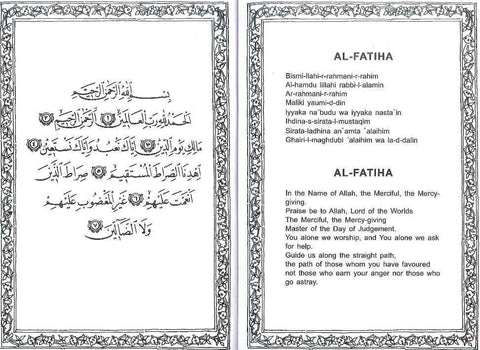 بِسْمِ اللَّهِ الرَّحْمَنِ الرَّحِيمِ
الْحَمْدُ لِلَّهِ رَبِّ الْعَالَمِينَ ۝ الرَّحْمَنِ الرَّحِيمِ ۝
مَالِكِ يَوْمِ الدِّينِ ۝ إِيَّاكَ نَعْبُدُ وَإِيَّاكَ نَسْتَعِينُ ۝
اهْدِنَا الصِّرَاطَ الْمُسْتَقِيمَ ۝ صِرَاطَ الَّذِينَ
أَنْعَمْتَ عَلَيْهِمْ ۝ غَيْرِ الْمَغْضُوبِ عَلَيْهِمْ
وَلَا الضَّالِّينَ ۝
AL-FATIHA
Bismi-llahi-r-rahmani-r-rahim
Al-hamdu lillahi rabbi-l-alamin
Ar-rahmani-r-rahim
Maliki yaumi-d-din
Iyyaka na`budu wa iyyaka nasta`in
Ihdina-s-sirata-l-mustaqim
Sirata-ladhina an`amta `alaihim
Ghairi-l-maghdubi `alaihim wa la-d-dalin
AL-FATIHA
In the Name of Allah, the Merciful, the Mercy-
giving.
Praise be to Allah, Lord of the Worlds
The Merciful, the Mercy-giving
Master of the Day of Judgement.
You alone we worship, and You alone we ask
for help.
Guide us along the straight path,
the path of those whom you have favoured
not those who earn your anger nor those who
go astray.